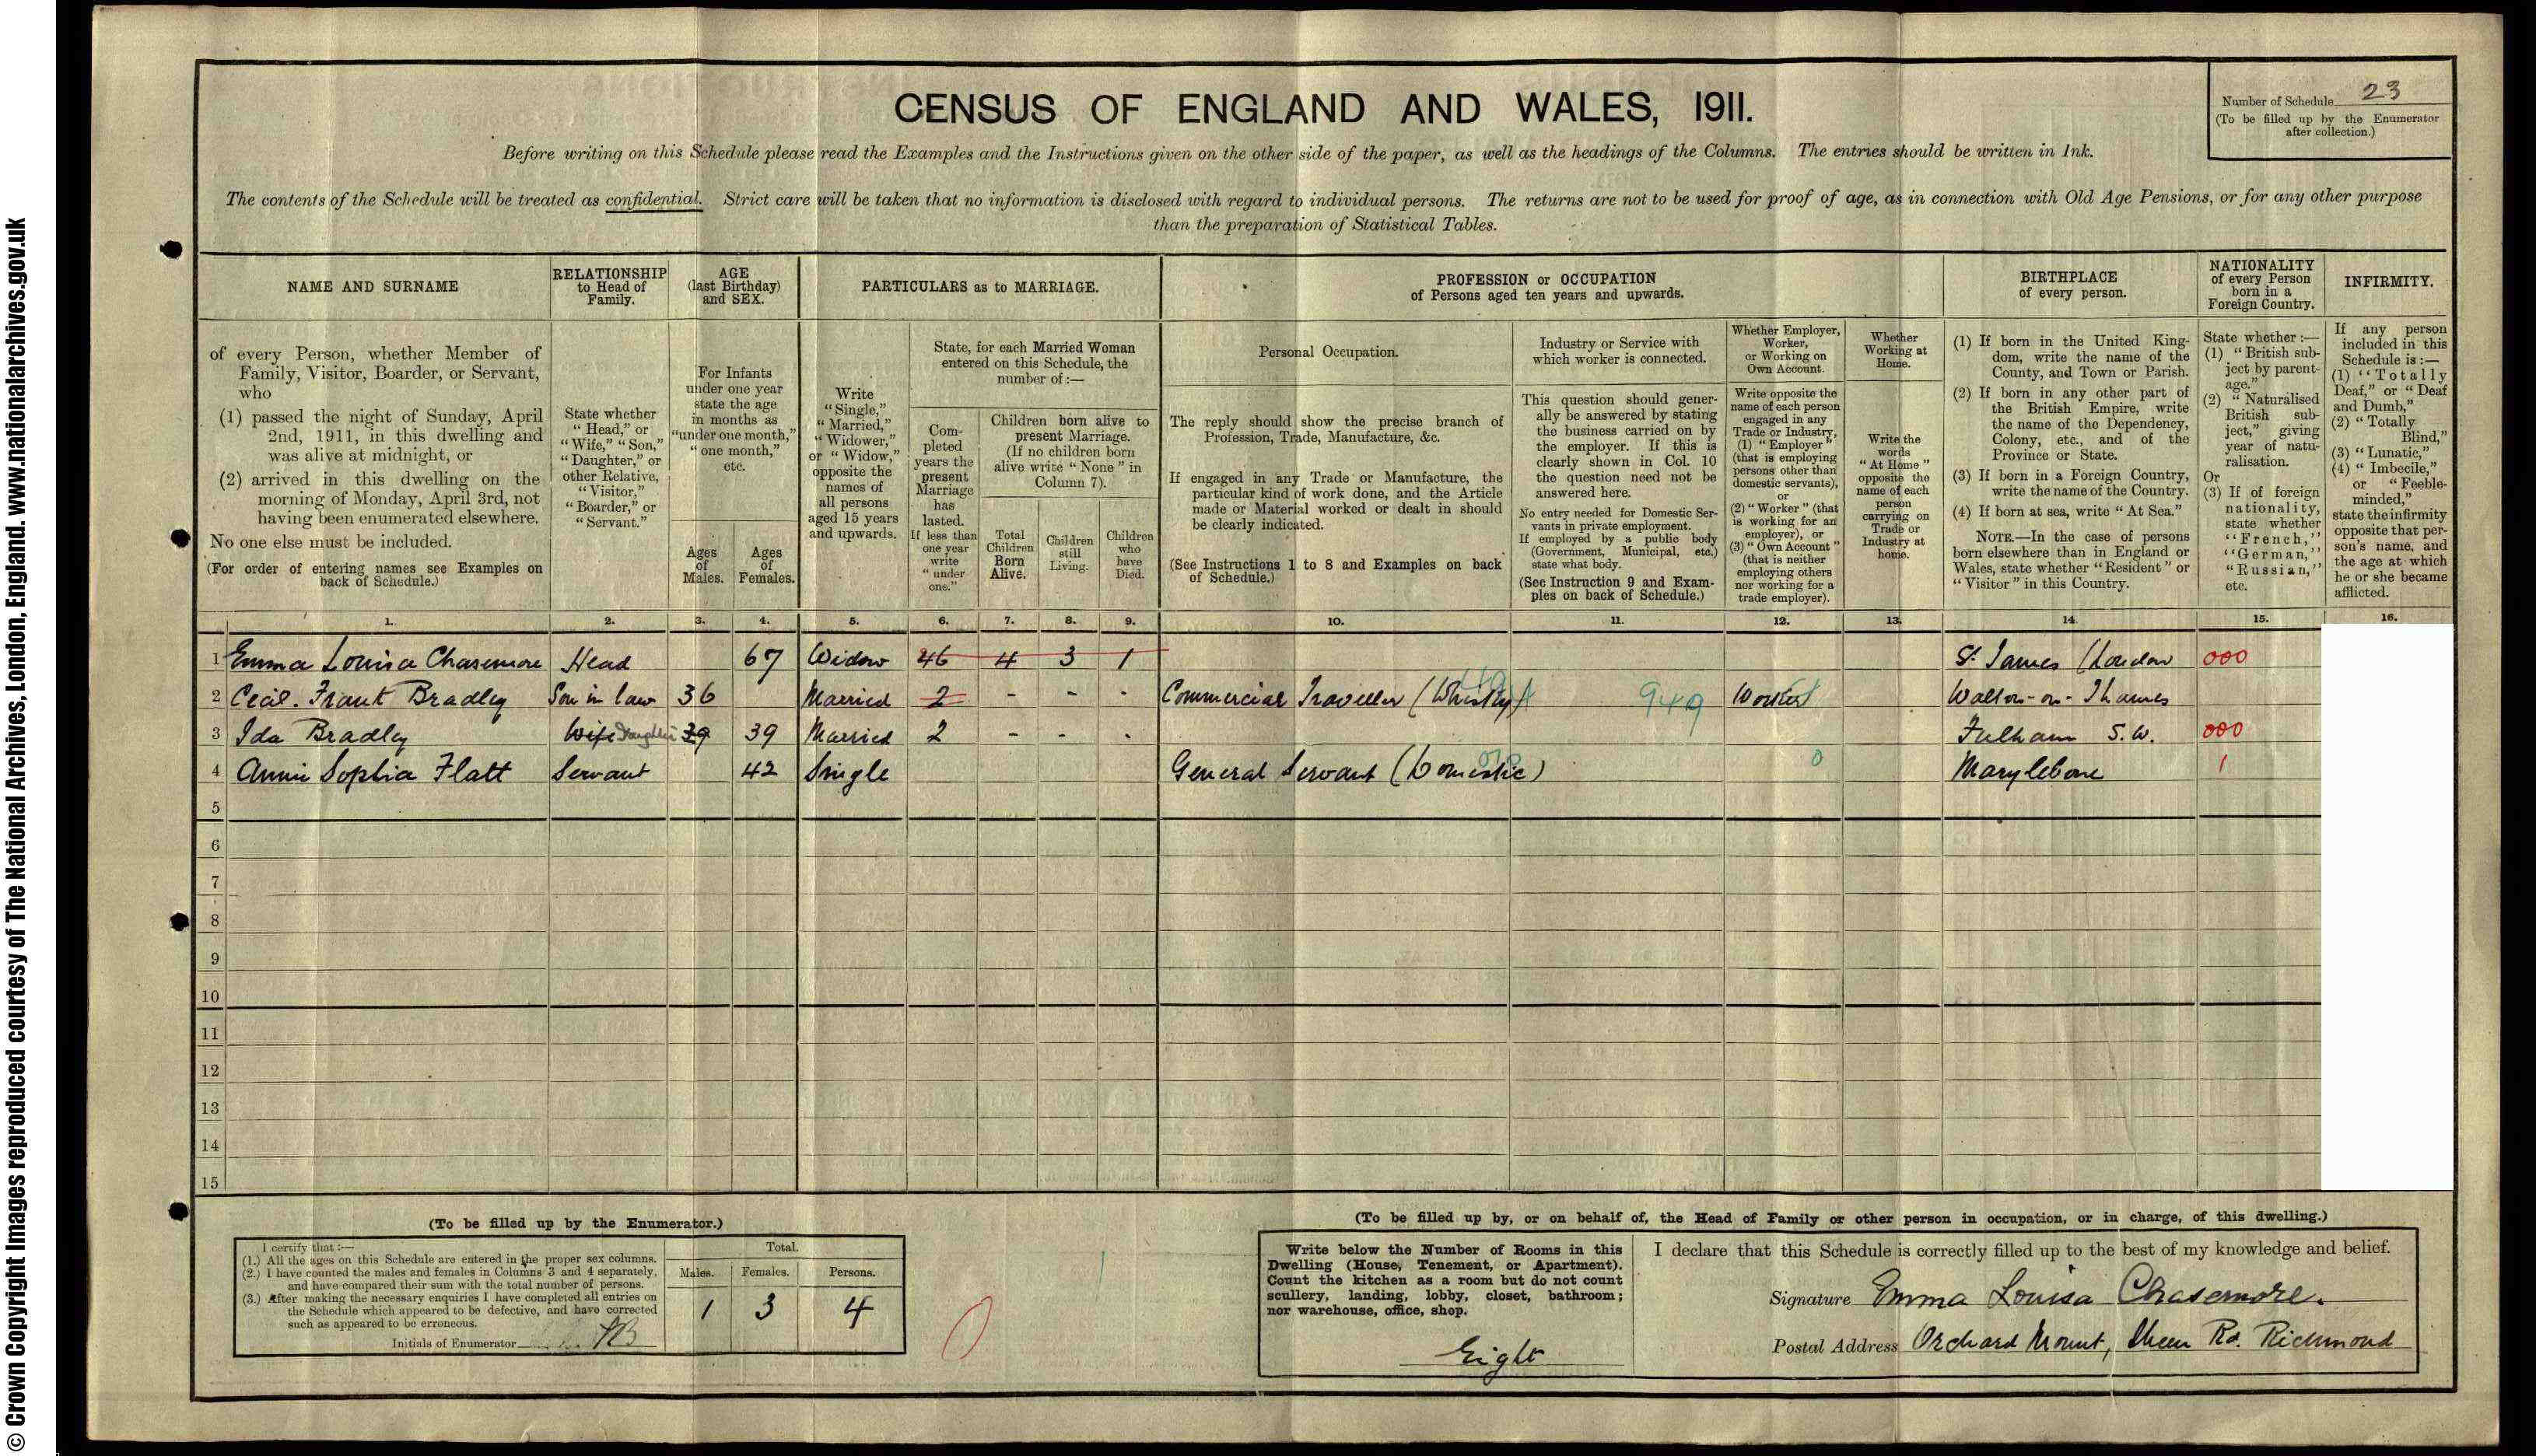 © Crown Copyright Images reproduced courtesy of The National Archives, London, England. www.nationalarchives.gov.uk
CENSUS OF ENGLAND AND WALES, 1911.
Number of Schedule 23
(To be filled up by the Enumerator
after collection.)
Before writing on this Schedule please read the Examples and the Instructions given on the other side of the paper, as well as the headings of the Columns. The entries should be written in Ink.
The contents of the Schedule will be treated as confidential. Strict care will be taken that no information is disclosed with regard to individual persons. The returns are not to be used for proof of age, as in connection with Old Age Pensions, or for any other purpose
than the preparation of Statistical Tables.
NAME AND SURNAME
RELATIONSHIP
to Head of
Family.
AGE
(last Birthday)
and SEX.
PARTICULARS as to MARRIAGE.
PROFESSION or OCCUPATION
of Persons aged ten years and upwards.
BIRTHPLACE
of every person.
NATIONALITY
of every Person
born in a
Foreign Country.
INFIRMITY.
of every Person, whether Member of
Family, Visitor, Boarder, or Servant,
who
(1) passed the night of Sunday, April
2nd, 1911, in this dwelling and
was alive at midnight, or
(2) arrived in this dwelling on the
morning of Monday, April 3rd, not
having been enumerated elsewhere.
No one else must be included.
(For order of entering names see Examples on
back of Schedule.)
State whether
"Head," or
"Wife," "Son,"
"Daughter," or
other Relative,
"Visitor,"
"Boarder," or
"Servant."
For Infants
under one year
state the age
in months as
"under one month,"
"one month,"
etc.
Ages
of
Males.
Ages
of
Females.
Write
"Single,"
"Married,"
"Widower,"
or "Widow,"
opposite the
names of
all persons
aged 15 years
and upwards.
State, for each Married Woman
entered on this Schedule, the
number of :—
Com-
pleted
years the
present
Marriage
has
lasted.
If less than
one year
write
"under
one."
Children born alive to
present Marriage.
(If no children born
alive write "None" in
Column 7).
Total
Children
Born
Alive.
Children
still
Living.
Children
who
have
Died.
Personal Occupation.
The reply should show the precise branch of
Profession, Trade, Manufacture, &c.
If engaged in any Trade or Manufacture, the
particular kind of work done, and the Article
made or Material worked or dealt in should
be clearly indicated.
(See Instructions 1 to 8 and Examples on back
of Schedule.)
Industry or Service with
which worker is connected.
This question should gener-
ally be answered by stating
the business carried on by
the employer. If this is
clearly shown in Col. 10
the question need not be
answered here.
No entry needed for Domestic Ser-
vants in private employment.
If employed by a public body
(Government, Municipal, etc.)
state what body.
(See Instruction 9 and Exam-
ples on back of Schedule.)
Whether Employer,
Worker,
or Working on
Own Account.
Write opposite the
name of each person
engaged in any
Trade or Industry,
(1) "Employer"
(that is employing
persons other than
domestic servants),
or
(2) "Worker" (that
is working for an
employer), or
(3) "Own Account"
(that is neither
employing others
nor working for a
trade employer).
Whether
Working at
Home.
Write the
words
"At Home"
opposite the
name of each
person
carrying on
Trade or
Industry at
home.
(1) If born in the United King-
dom, write the name of the
County, and Town or Parish.
(2) If born in any other part of
the British Empire, write
the name of the Dependency,
Colony, etc., and of the
Province or State.
(3) If born in a Foreign Country,
write the name of the Country.
(4) If born at sea, write "At Sea."
NOTE.—In the case of persons
born elsewhere than in England or
Wales, state whether "Resident" or
"Visitor" in this Country.
State whether :—
(1) "British sub-
ject by parent-
age."
(2) "Naturalised
British sub-
ject," giving
year of natu-
ralisation.
Or
(3) If of foreign
nationality,
state whether
"French,"
"German,"
"Russian,"
etc.
If any person
included in this
Schedule is :—
(1) "Totally
Deaf," or "Deaf
and Dumb,"
(2) "Totally
Blind,"
(3) "Lunatic,"
(4) "Imbecile,"
or "Feeble-
minded,"
state the infirmity
opposite that per-
son's name, and
the age at which
he or she became
afflicted.
1. 2. 3. 4. 5. 6. 7. 8. 9. 10. 11. 12. 13. 14. 15. 16.
1 Emma Louisa Chasemore Head 67 Widow 46 4 3 1 St. James (London 000
2 Cecil. Frank Bradley Son in law 36 Married 2 - - - Commercial Traveller (Whisky) 949 Worker Walton-on-Thames
3 Ida Bradley Wife Daughter 39 39 Married 2 - - - Fulham S.W. 000
4 Annie Sophia Flatt Servant 42 Single General Servant (Domestic) 0 Marylebone 1
5
6
7
8
9
10
11
12
13
14
15
(To be filled up by the Enumerator.)
I certify that :—
(1.) All the ages on this Schedule are entered in the proper sex columns.
(2.) I have counted the males and females in Columns 3 and 4 separately,
and have compared their sum with the total number of persons.
(3.) After making the necessary enquiries I have completed all entries on
the Schedule which appeared to be defective, and have corrected
such as appeared to be erroneous.
Initials of Enumerator
Total.
Males. Females. Persons.
1 3 4
0
(To be filled up by, or on behalf of, the Head of Family or other person in occupation, or in charge, of this dwelling.)
Write below the Number of Rooms in this
Dwelling (House, Tenement, or Apartment).
Count the kitchen as a room but do not count
scullery, landing, lobby, closet, bathroom;
nor warehouse, office, shop.
Eight
I declare that this Schedule is correctly filled up to the best of my knowledge and belief.
Signature Emma Louisa Chasemore.
Postal Address Orchard Mount, Sheen Rd. Richmond